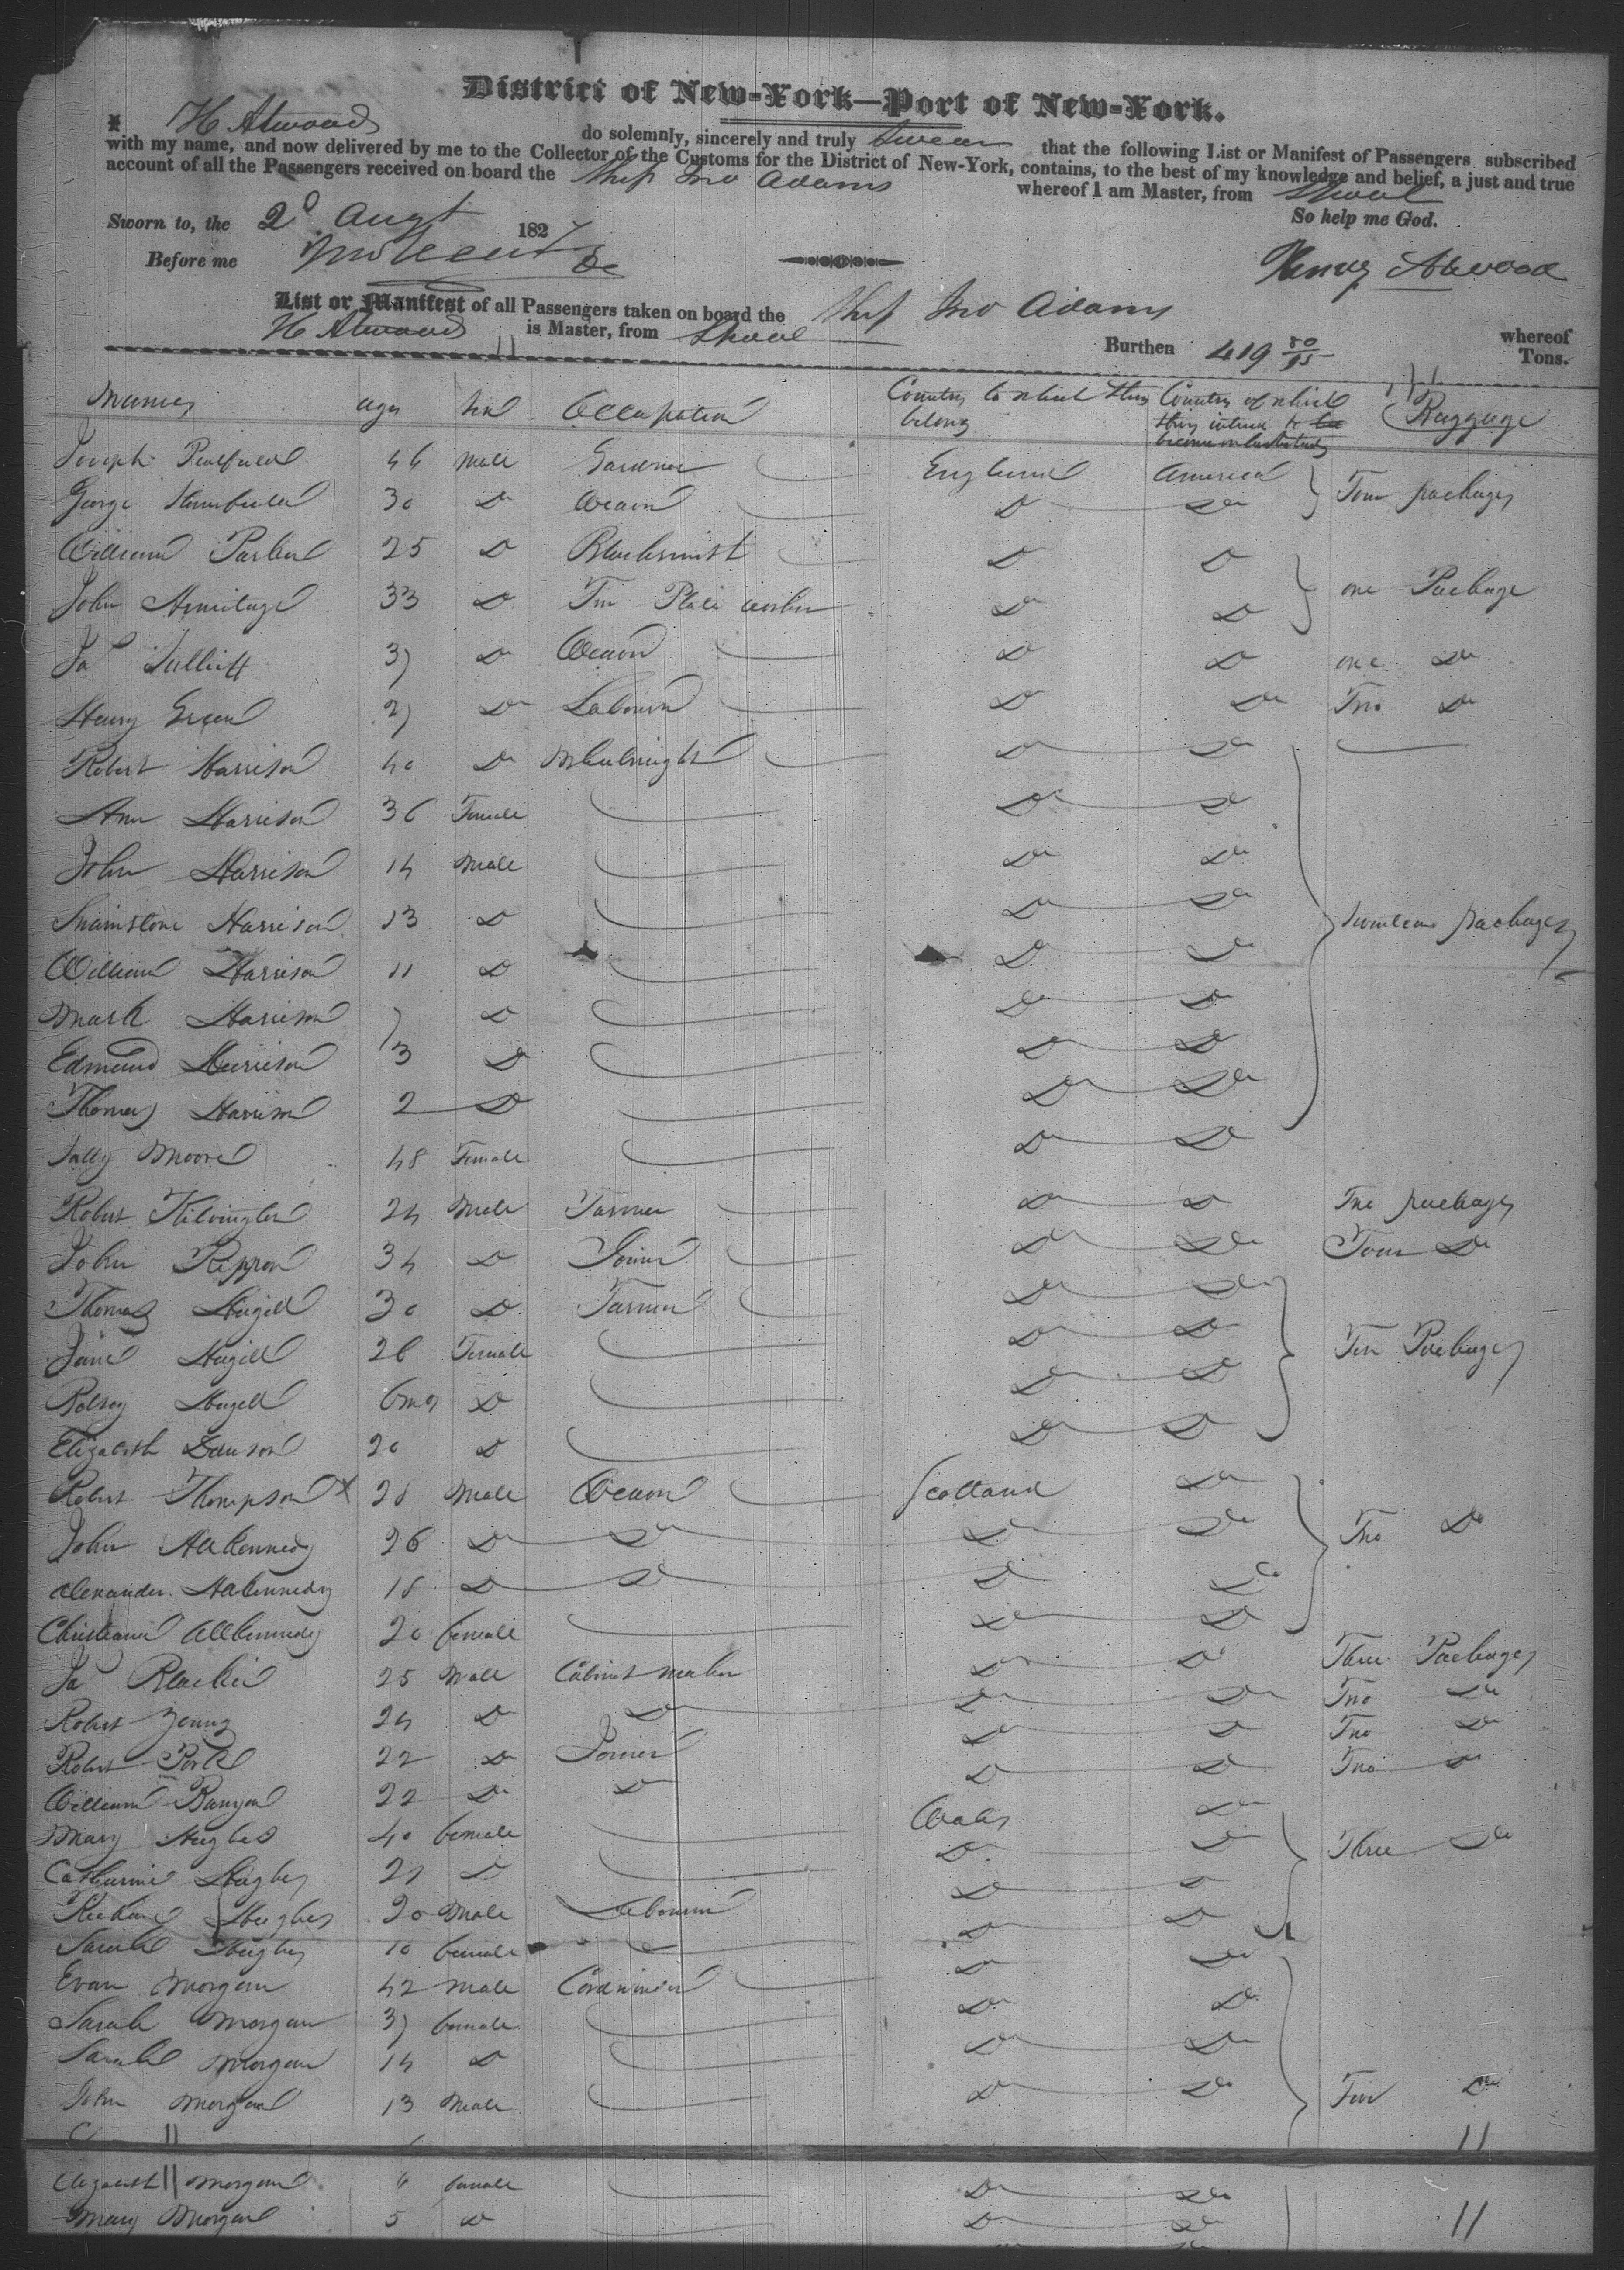 District of New-York—Port of New-York.
H Atwood do solemnly, sincerely and truly Swear that the following List or Manifest of Passengers subscribed
with my name, and now delivered by me to the Collector of the Customs for the District of New-York, contains, to the best of my knowledge and belief, a just and true
account of all the Passengers received on board the Ship Jno Adams whereof I am Master, from
Sworn to, the 2d Augt 1827 So help me God.
Before me Henry Atwood
List or Manifest of all Passengers taken on board the Ship Jno Adams whereof
H Atwood is Master, from Burthen 419 80/95 Tons.
Names ages Sex Occupation Country to which they belong Country of which they intend to become inhabitants Baggage
Joseph 46 Male Gardner England America
George 30 Do Weaver Do Do Four packages
William Parker 25 Do Blacksmith Do Do
John Armitage 33 Do Tin Plate worker Do Do one Package
Ja 37 Do Weaver Do Do one Do
Henry Green 27 Do Labourer Do Do Two Do
Robert Harrison 40 Do Wheelwright Do Do
Ann Harrison 36 Female Do Do
John Harrison 14 Male Do Do
Harrison 13 Do Do Do packages
William Harrison 11 Do Do Do
Mark Harrison 7 Do Do Do
Edmund Harrison 3 Do Do Do
Thomas Harrison 2 Do Do Do
Sally Moore 48 Female Do Do
Robert Kilvington 24 Male Farmer Do Do Two packages
John Rippon 34 Do Joiner Do Do Four Do
Thomas Hugill 30 Do Farmer Do Do
Jane Hugill 26 Female Do Do Ten Packages
Betsey Hugill 6 mos Do Do Do
Elizabeth Dawson 20 Do Do Do
Robert Thompson X 28 Male Weaver Scotland Do
John 26 Do Do Do Do Two Do
Alexander 18 Do Do Do Do
20 female Do Do
Ja Blackie 25 Male Cabinet maker Do Do Three Packages
Robert Young 24 Do Do Do Do Two Do
Robert Park 22 Do Joiner Do Do Two Do
William 22 Do Do Do Do Two Do
Mary Hughes 40 female Wales Do
Catharine Hughes 21 Do Do Do Three Do
Richard Hughes 20 Male Labourer Do Do
Sarah Hughes 10 female Do Do
Evan Morgan 42 Male Cordwinder Do Do
Sarah Morgan 37 female Do Do
Sarah Morgan 14 Do Do Do
John Morgan 13 Male Do Do Do
Elizabeth Morgan 6 female Do Do
Mary Morgan 5 Do Do Do